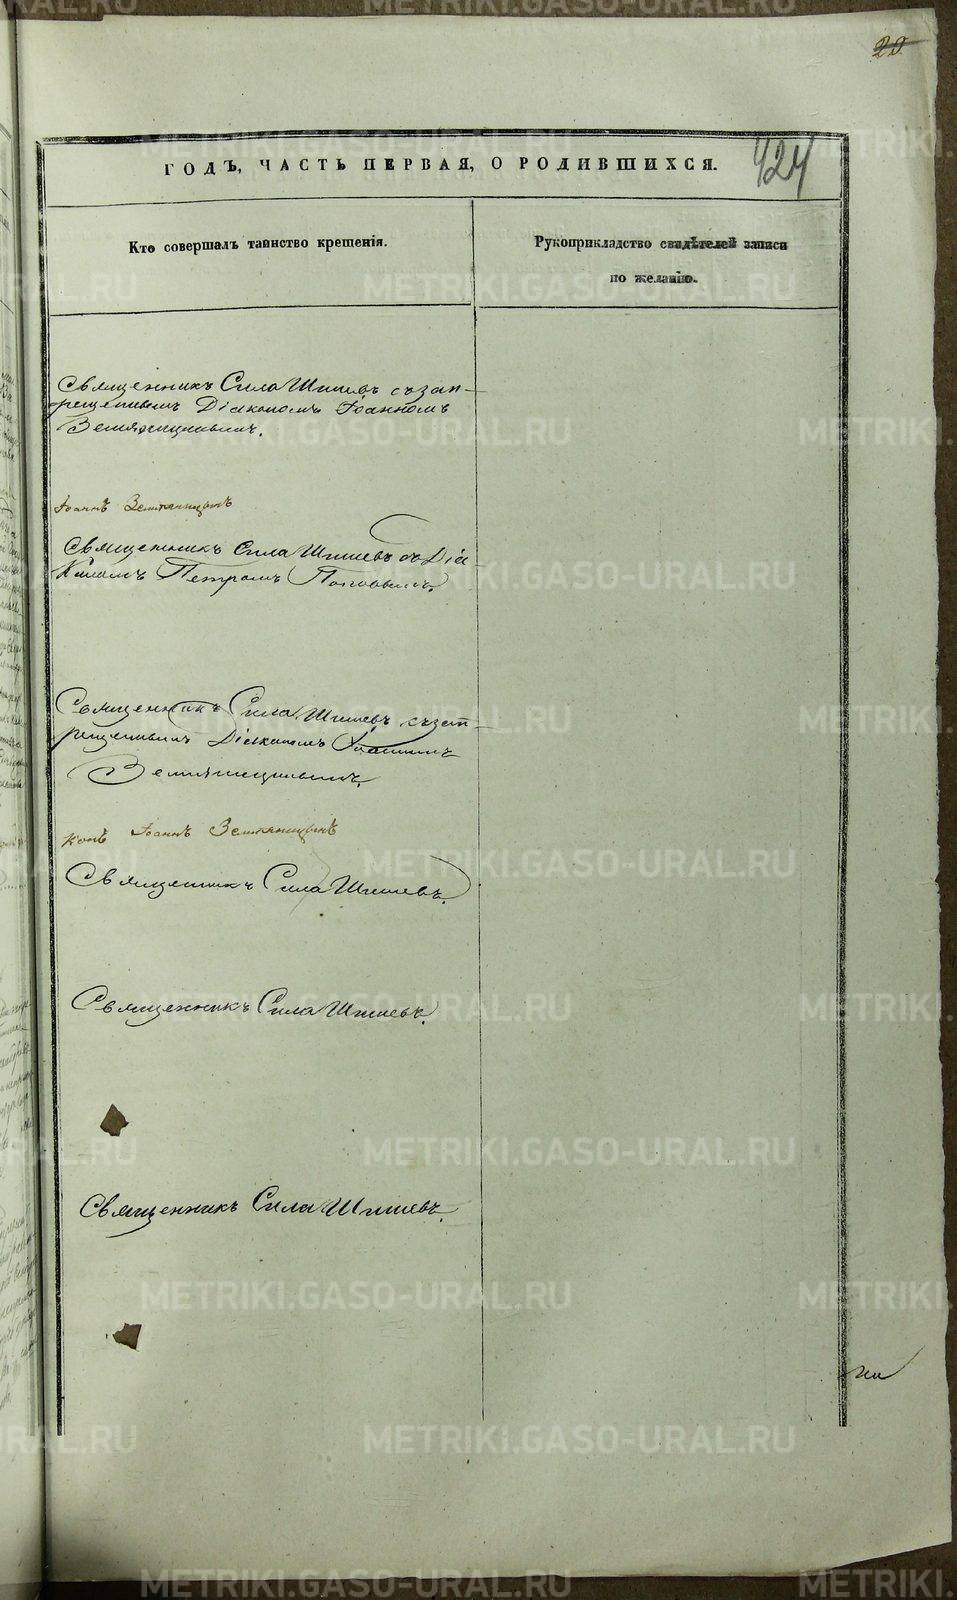 20
424
ГОДЪ, ЧАСТЬ ПЕРВАЯ, О РОДИВШИХСЯ.
Кто совершалъ таинство крещенія.
Рукоприкладство свидѣтелей записи
по желанію.
Священникъ Сила Шишевъ съ зап-
рещеннымъ Діакономъ Іоанномъ
Земляницынымъ.
Іоаннъ Земляницынъ
Священникъ Сила Шишевъ съ Діа-
кономъ Петромъ Поповымъ.
Священникъ Сила Шишевъ съ зап-
рещеннымъ Діакономъ Іоанномъ
Земляницынымъ.
Іоаннъ Земляницынъ
Священникъ Сила Шишевъ.
Священникъ Сила Шишевъ.
Священникъ Сила Шишевъ.
METRIKI.GASO-URAL.RU